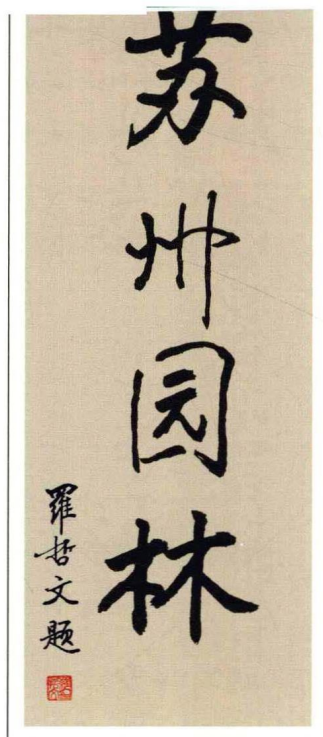 苏州园林
羅哲文题